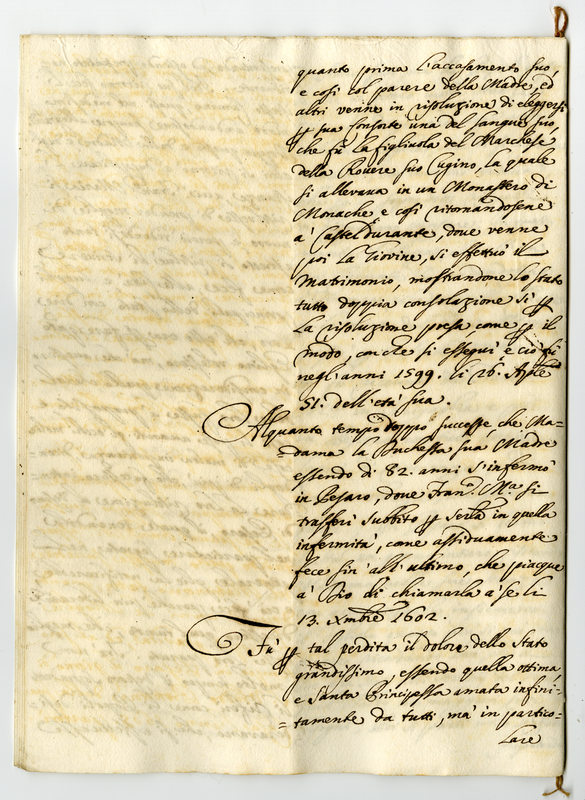 quanto prima l'accasamento suo,
e così col parere della Madre, ed
altri venne in risoluzione di eleggersi
ꝑ sua Consorte una del sangue suo,
che fù la figliuola del Marchese
della Rovere suo Cugino, la quale
si allevava in un Monastero di
Monache e così ritornandosene
à Casteldurante, dove venne
poi la Giovine, si effettuò il
Matrimonio, mostrandone lo stato
tutto doppia consolazione sì ꝑ
la risoluzione presa, come ꝑ il
modo, con che si esseguì, e ciò fù
negl'anni 1599. li 26. Aple
51. dell'età sua.
Alquanto tempo doppo successe, che Ma-
=dama la Duchessa sua Madre
essendo di 82. anni s'infermò
in Pesaro, dove Fran.º M.ª si
trasferì subbito ꝑ servla in quella
infermità, come assiduamente
fece sin'all'ultimo, che piacque
à Dio di chiamarla à se li
13. Xmbre 1602.
Fù ꝑ tal perdita il dolore dello stato
grandissimo, essendo quella ottima,
e Santa Principessa amata infini-
=tamente da tutti, mà in partico-
=lare